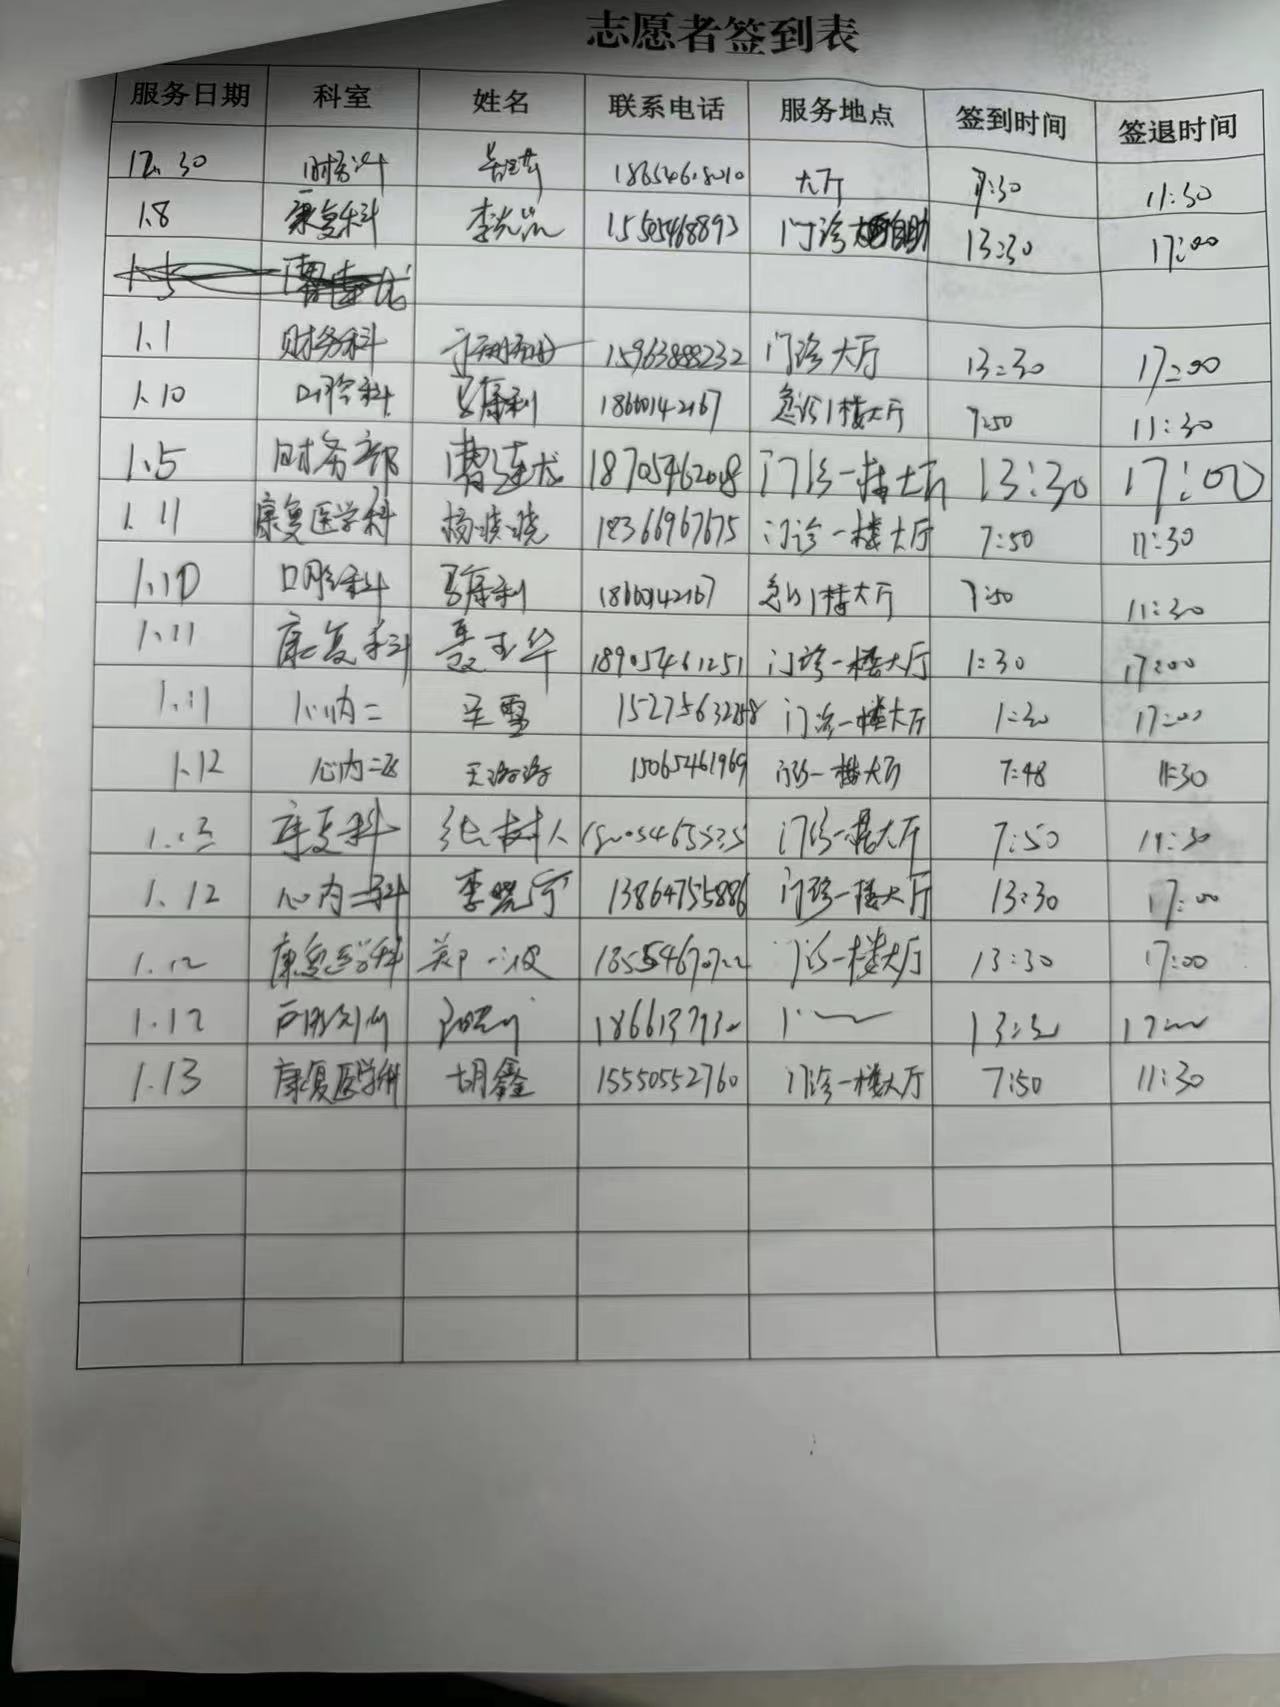 志愿者签到表
服务日期 科室 姓名 联系电话 服务地点 签到时间 签退时间
12.30 财务科 大厅 11:30
1.8 康复科 15505468893 门诊大 自助 13:30 17:00
1.5 曹连龙
1.1 财务科 15963888232 门诊大厅 13:30 17:00
1.10 口腔科 马康利 18660142167 急诊1楼大厅 7:50 11:30
1.5 财务部 曹连龙 18705462018 门诊一楼大厅 13:30 17:00
1.11 康复医学科 杨晓晓 18366967675 门诊一楼大厅 7:50 11:30
1.10 口腔科 马康利 18660142167 急诊1楼大厅 7:50 11:30
1.11 康复科 聂玉华 18905461251 门诊一楼大厅 1:30 17:00
1.11 心内二 辛雪 门诊一楼大厅 1:30 17:00
1.12 心内二 王洛洛 15065461969 门诊一楼大厅 7:48 11:30
1.13 康复科 树人 门诊一楼大厅 7:50 11:30
1.12 心内二科 李晓宇 13864755886 门诊一楼大厅 13:30 17:00
1.12 康复医学科 郑一波 门诊一楼大厅 13:30 17:00
1.12 13:30
1.13 康复医学科 胡鑫 15550552760 门诊一楼大厅 7:50 11:30